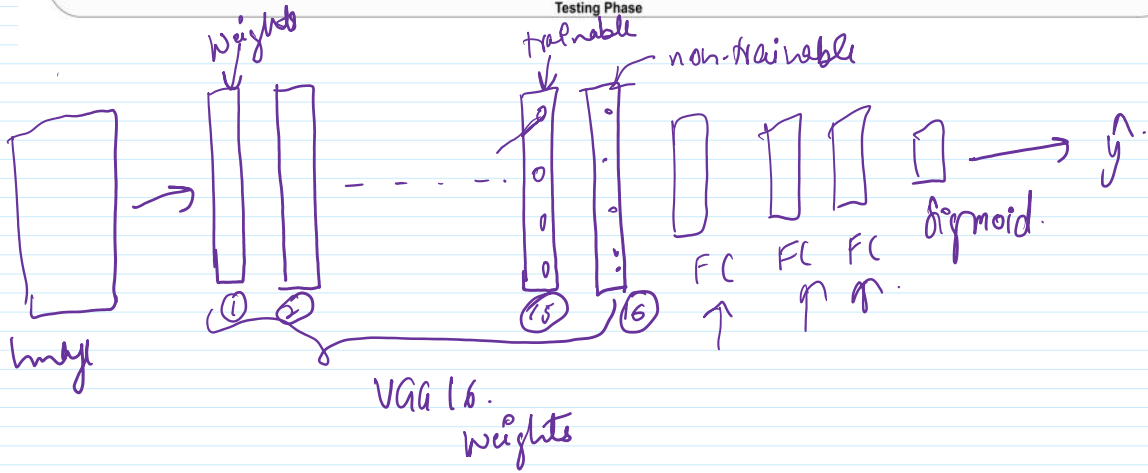 Testing Phase
Weights
trainable
non-trainable
ŷ.
Sigmoid.
FC
FC
FC
1
2
15
16
Image
VGG16.
Weights